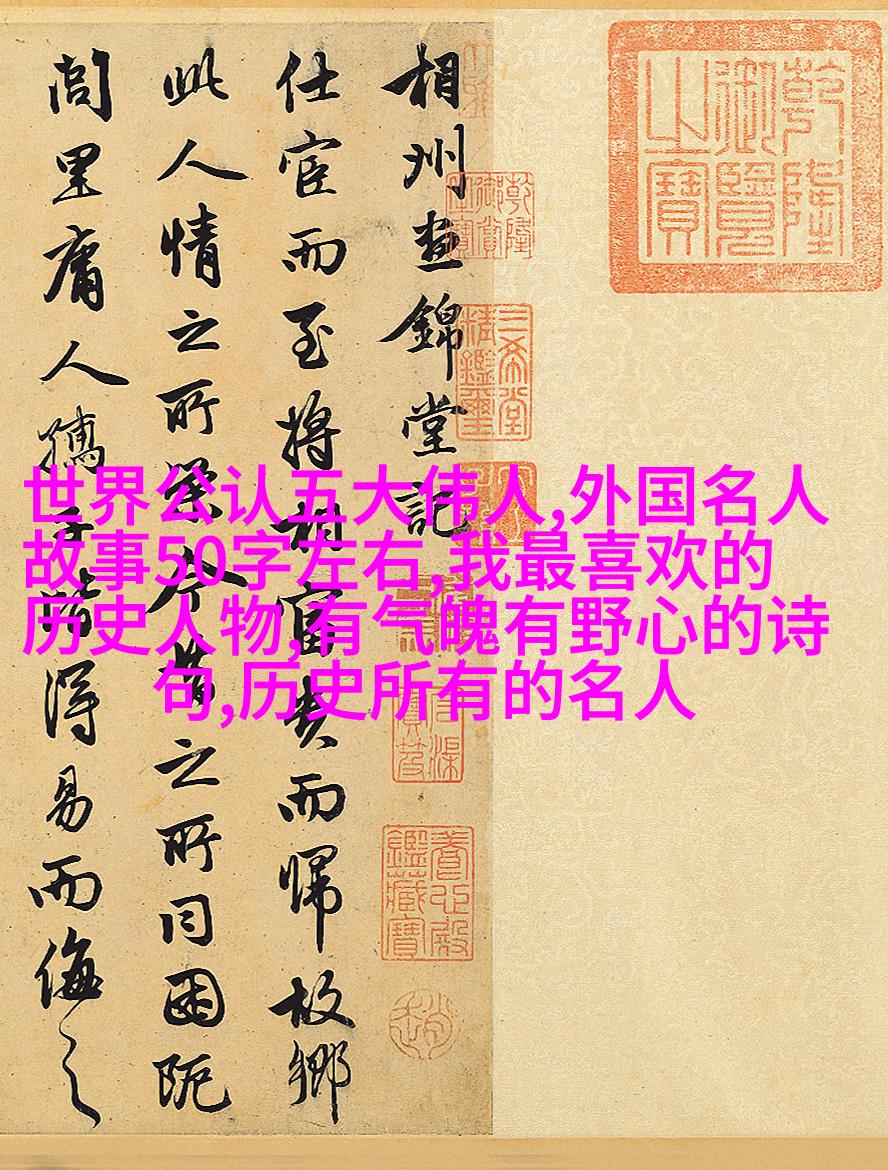 乾隆御覽之寶
三希堂精鑑璽
養心殿鑑藏寶
相州晝錦堂記
仕宦而至將相富貴而歸故鄉
此人情之所榮今昔之所同困阨
閭里庸人孺子皆得易而侮之
世界公认五大伟人,外国名人
故事50字左右,我最喜欢的
历史人物,有气魄有野心的诗
句,历史所有的名人